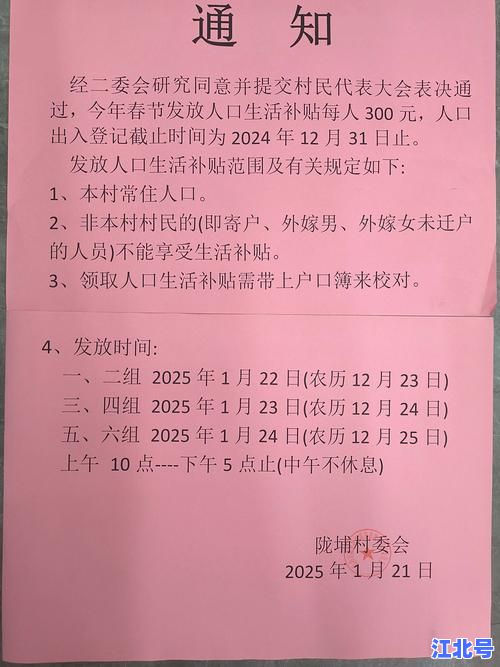 通 知
经二委会研究同意并提交村民代表大会表决通
过，今年春节发放人口生活补贴每人 300 元，人口
出入登记截止时间为 2024 年 12 月 31 日止。
发放人口生活补贴范围及有关规定如下:
1、本村常住人口。
2、非本村村民的(即寄户、外嫁男、外嫁女未迁户
的人员)不能享受生活补贴。
3、领取人口生活补贴需带上户口簿来校对。
4、发放时间:
一、二组 2025 年 1 月 22 日(农历 12 月 23 日)
三、四组 2025 年 1 月 23 日(农历 12 月 24 日)
五、六组 2025 年 1 月 24 日(农历 12 月 25 日)
上午 10 点----下午 5 点止(中午不休息)
陇埔村委会
2025 年 1 月 21 日
江北号